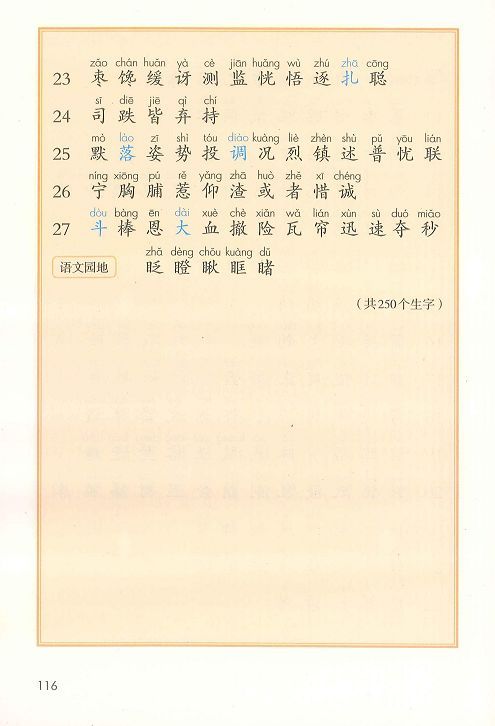 zǎo chán huǎn yà cè jiān huǎng wù zhú zhā cōng
23 枣 馋 缓 讶 测 监 恍 悟 逐 扎 聪
sī diē jiē qì chí
24 司 跌 皆 弃 持
mò lào zī shì tóu diào kuàng liè zhèn shù pǔ yōu lián
25 默 落 姿 势 投 调 况 烈 镇 述 普 忧 联
níng xiōng pú rě yǎng zhā huò zhě xī chéng
26 宁 胸 脯 惹 仰 渣 或 者 惜 诚
dǒu bàng ēn dài xuè chè xiǎn wǎ lián xùn sù duó miǎo
27 斗 棒 恩 大 血 撤 险 瓦 帘 迅 速 夺 秒
zhǎ dèng chǒu kuàng dǔ
语文园地 眨 瞪 瞅 眶 睹
（共250个生字）
116